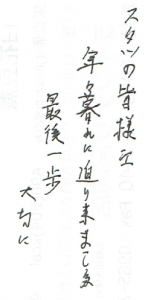 スタッフの皆様え
年の暮れに迫り来ました
最後一歩
大切に